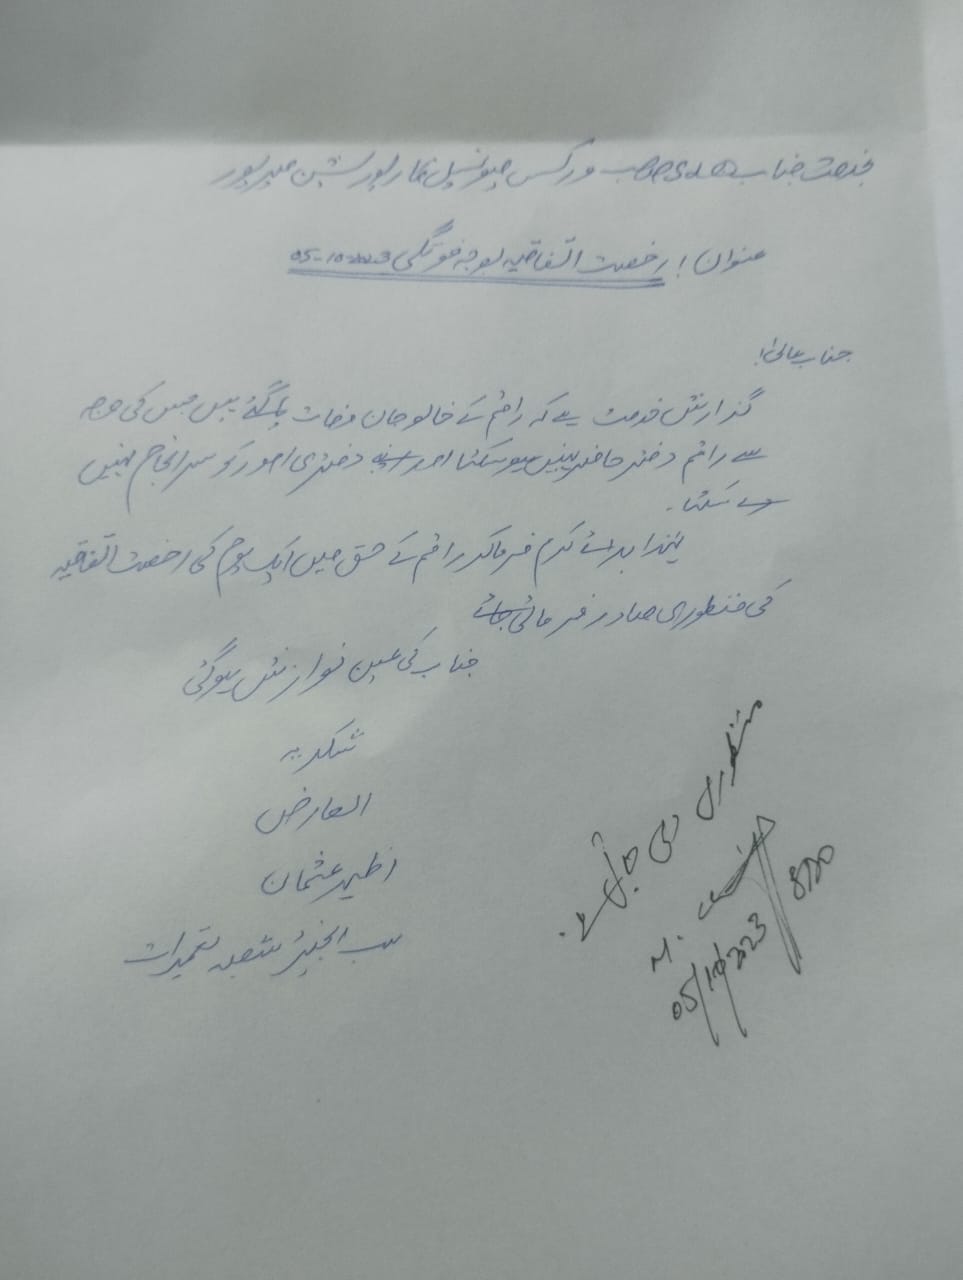 بخدمت جناب SDO صاحب ورکس میونسپل کارپوریشن میرپور
عنوان! رخصت اتفاقیہ بوجہ فوتگی 05-10-2023
جناب عالی!
گذارش خدمت ہے کہ راقم کے خالو جان وفات پا گئے ہیں جس کی وجہ
سے راقم دفتر حاضر نہیں ہو سکتا اور دفتری امور کو سرانجام نہیں
دے سکتا۔
لہٰذا برائے کرم فرما کر راقم کے حق میں ایک یوم کی رخصت اتفاقیہ
کی منظوری صادر فرمائی جائے
جناب کی عین نوازش ہوگی
شکریہ
العارض
اظہر عثمان
سب انجینئر شعبہ تعمیرات
منظوری دی جاتی ہے.
M.
SDO
05/10/2023